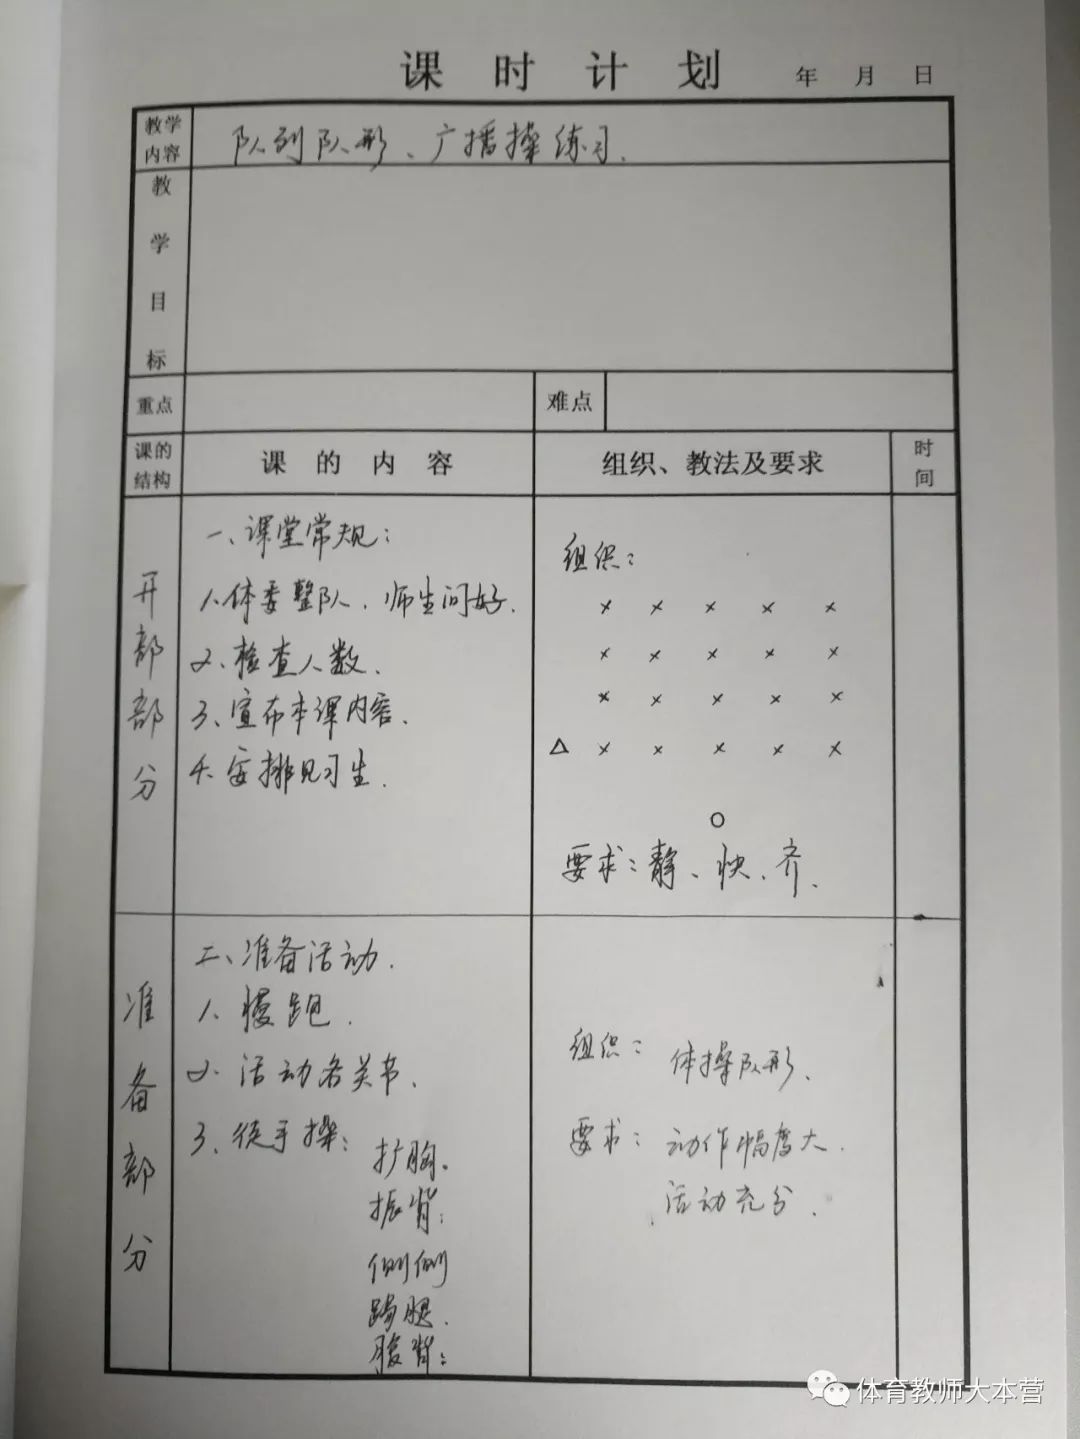 课时计划 年 月 日
教学内容 队列队形、广播操练习.
教学目标
重点 难点
课的结构 课的内容 组织、教法及要求 时间
开部部分
一、课堂常规:
1、体委整队、师生问好.
2、检查人数.
3、宣布本课内容.
4、安排见习生.
组织:
× × × × ×
× × × × ×
× × × × ×
△ × × × × ×
○
要求:静、快、齐.
准备部分
二、准备活动.
1、慢跑.
2、活动各关节.
3、徒手操:
扩胸.
振背:
侧侧
踢腿.
腹背:
组织: 体操队形.
要求: 动作幅度大.
活动充分.
体育教师大本营